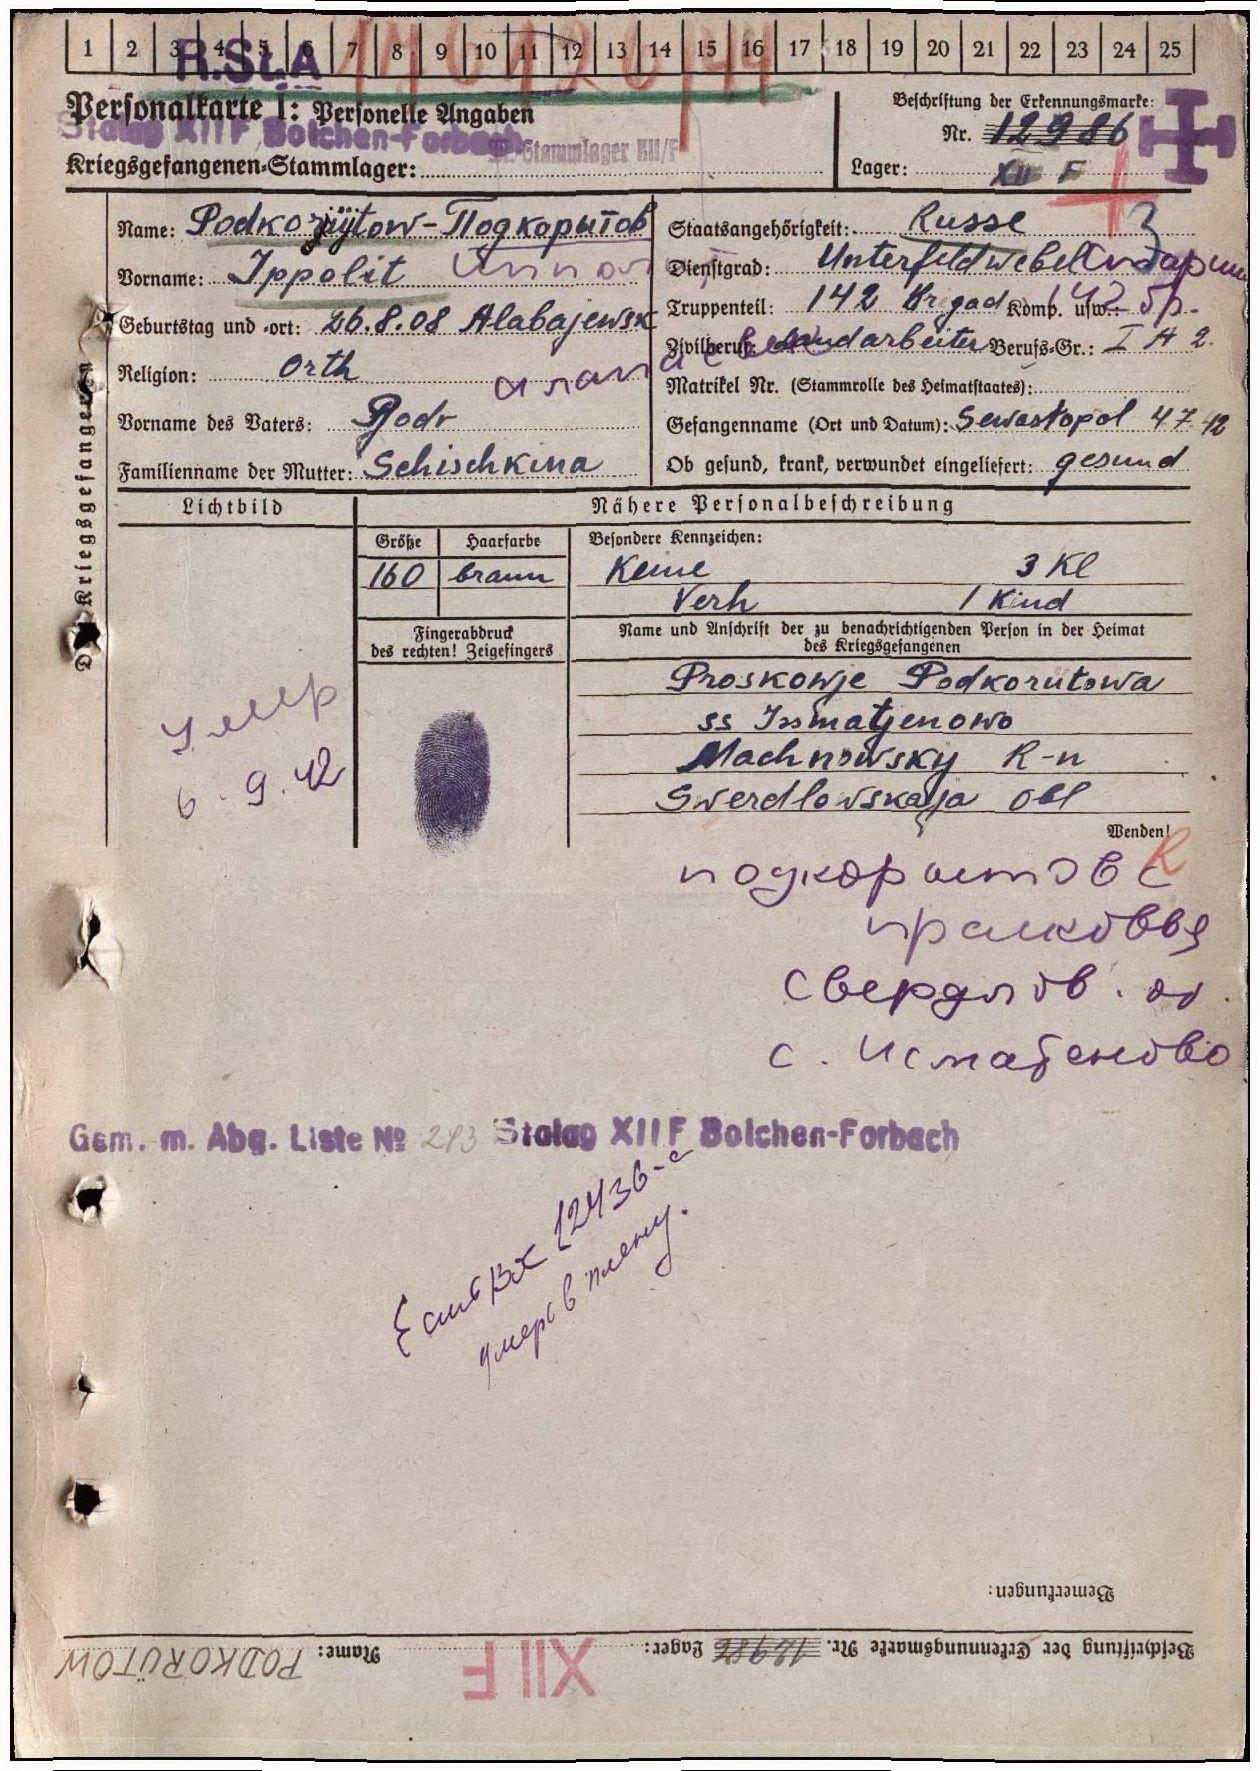 1 2 3 4 5 6 7 8 9 10 11 12 13 14 15 16 17 18 19 20 21 22 23 24 25
R.StA
Personalkarte I: Personelle Angaben
Stalag XII F Bolchen-Forbach
Stammlager XII/F
Kriegsgefangenen-Stammlager:
Beschriftung der Erkennungsmarke:
Nr. 12986
Lager: XII F
Des Kriegsgefangenen
Name: Podkorütow-Подкорытов
Vorname: Ippolit
Geburtstag und -ort: 26.8.08 Alabajewsk
Religion: Orth
Vorname des Vaters: Fjodr
Familienname der Mutter: Schischkina
Staatsangehörigkeit: Russe
Dienstgrad: Unterfeldwebel
Truppenteil: 142 Brigad Komp. usw.: 142 бр.
Zivilberuf: Landarbeiter Berufs-Gr.: I H 2.
Matrikel Nr. (Stammrolle des Heimatstaates):
Gefangenname (Ort und Datum): Sewastopol 4.7.42
Ob gesund, krank, verwundet eingeliefert: gesund
Lichtbild
Nähere Personalbeschreibung
Größe Haarfarbe
160 braun
Besondere Kennzeichen:
Keine 3 Kl
Verh 1 Kind
Fingerabdruck
des rechten! Zeigefingers
Name und Anschrift der zu benachrichtigenden Person in der Heimat
des Kriegsgefangenen
Proskowje Podkorütowa
ss Ismatjenowo
Machnowsky R-n
Swerdlowskaja obl
Wenden!
умер
6.9.42
подкорытова
прасковья
свердлов. об.
с. Исматеново
Gem. m. Abg. Liste № 243 Stalag XII F Bolchen-Forbach
Есть вх 12436-с
умер в плену.
Bemerkungen:
Beschriftung der Erkennungsmarke Nr. 12986 Lager: XII F Name: PODKORÜTOW